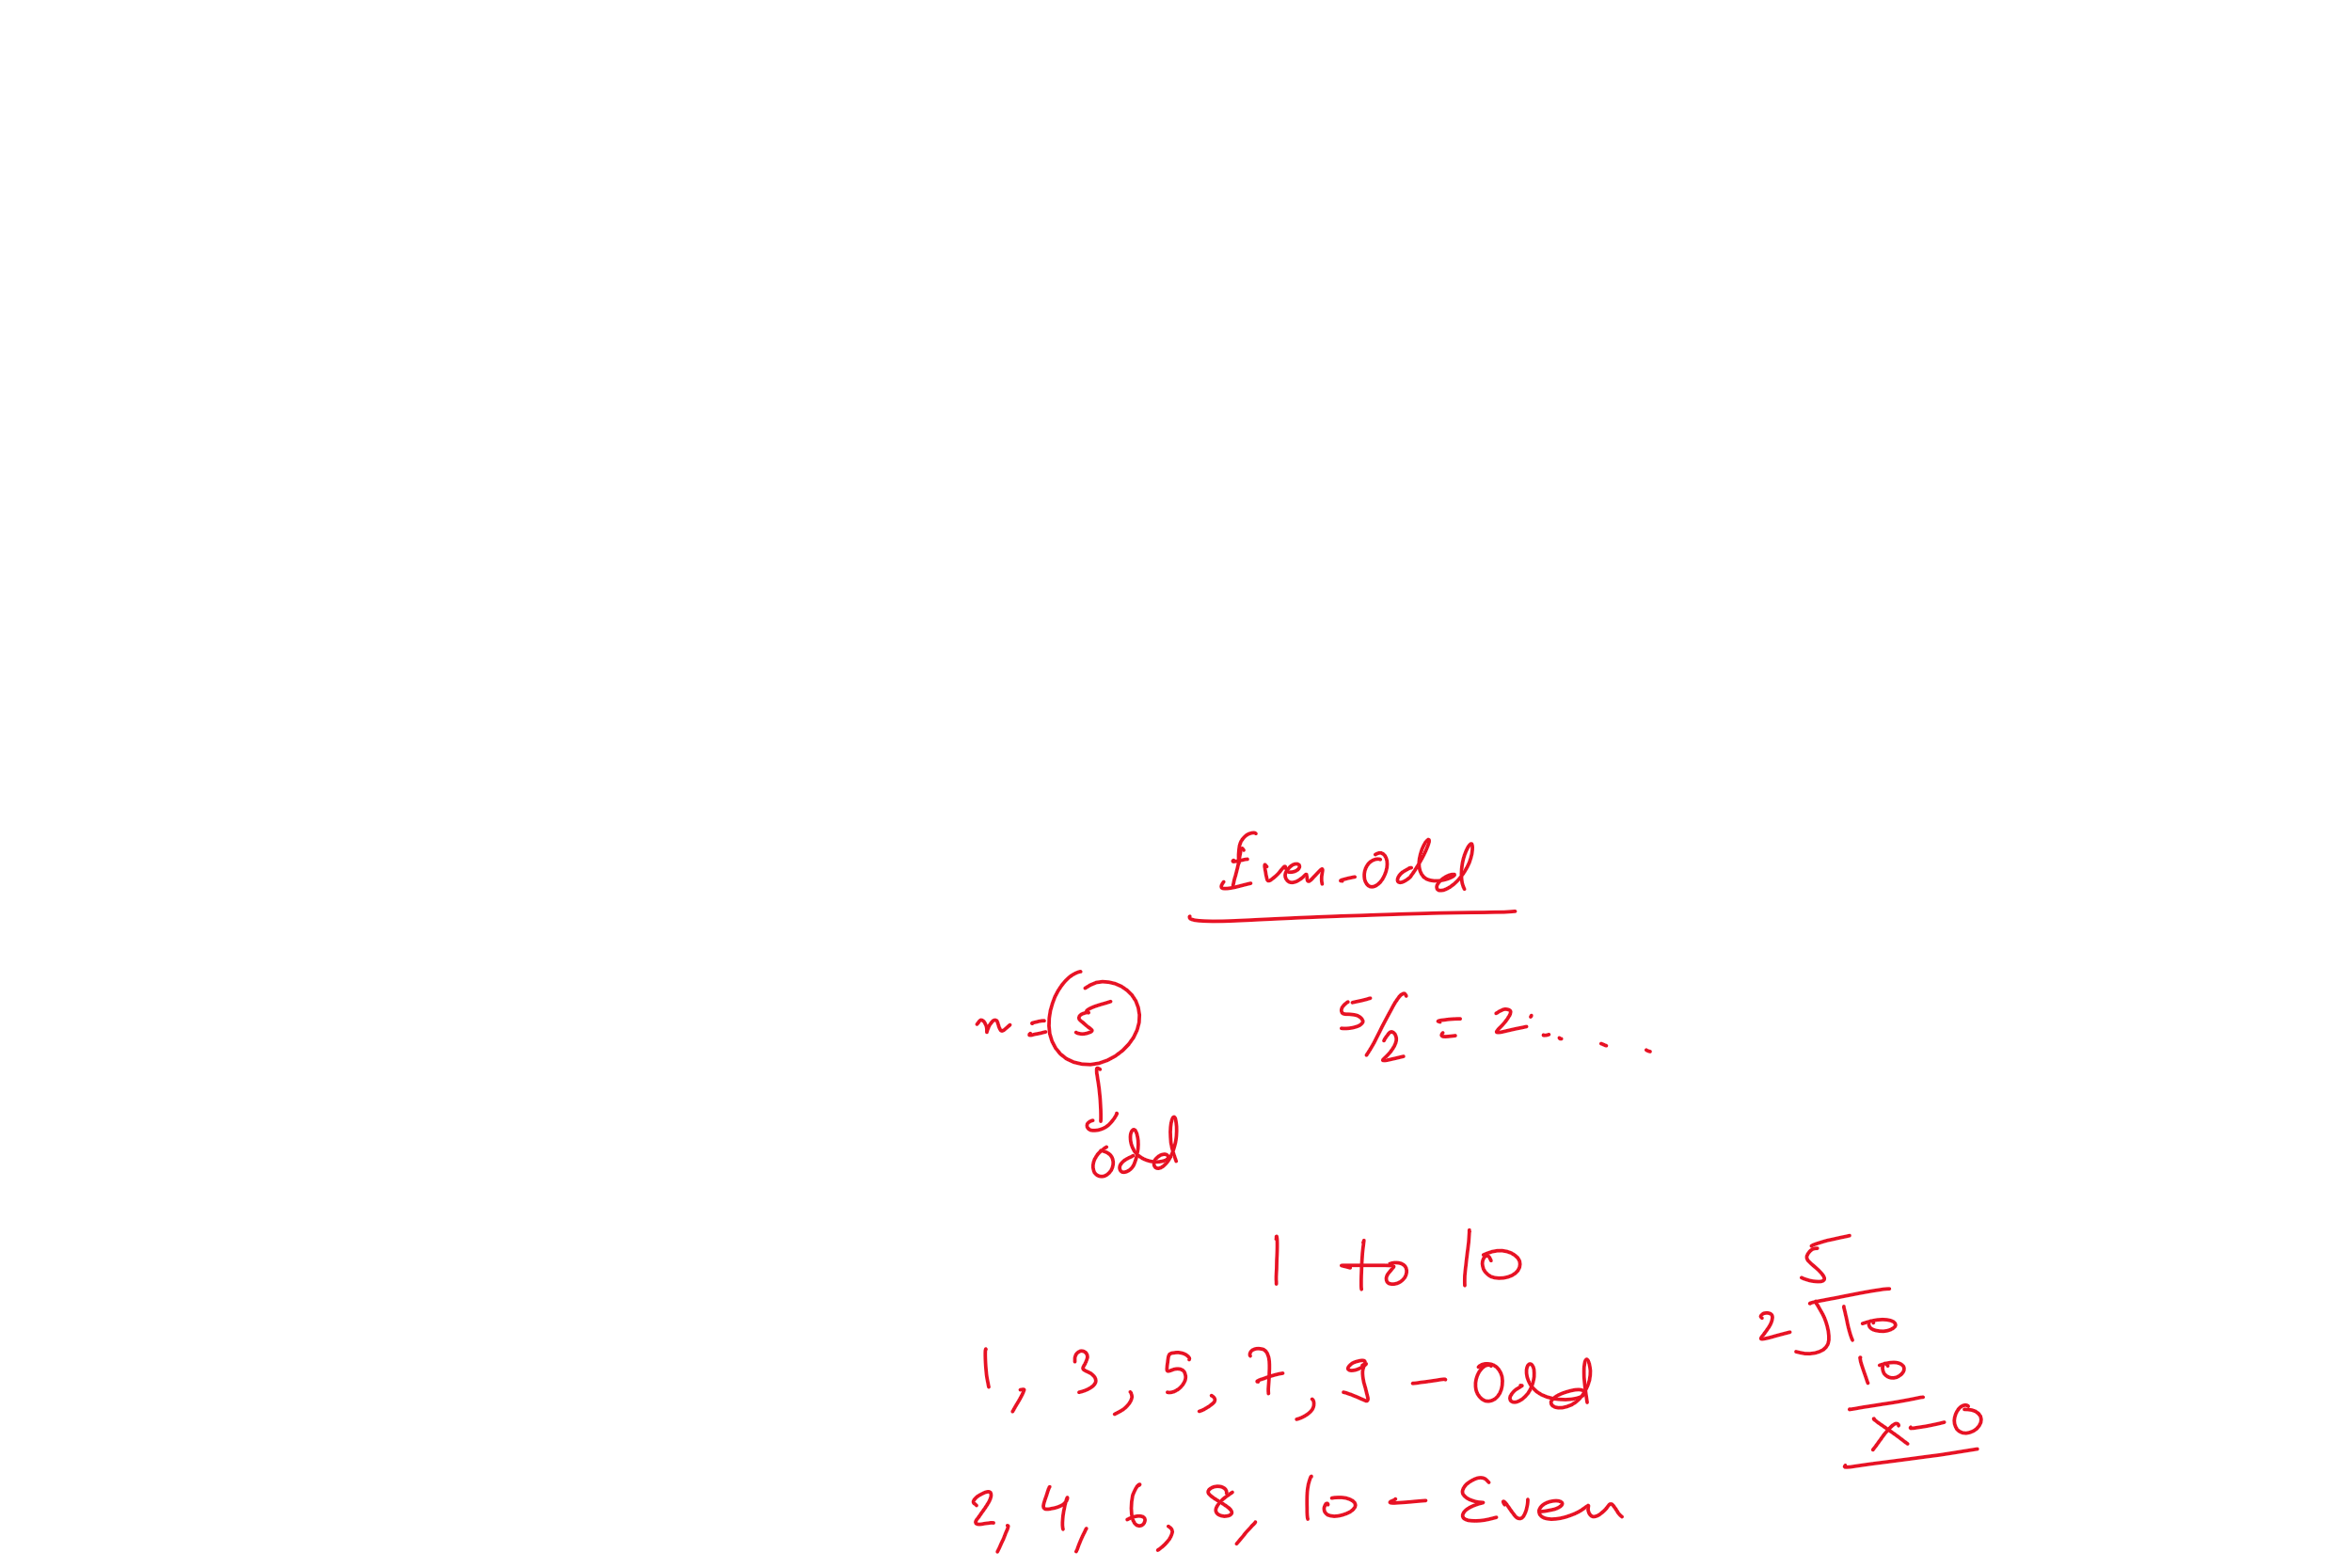 Even-Odd
n = 5
5/2 = 2. . . . .
odd
1 to 10
1, 3, 5, 7, 9 - Odd
2, 4, 6, 8, 10 - Even
5
2)10
10
x - 0